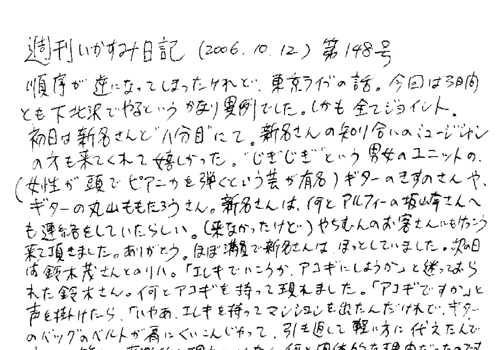 週刊いかすみ日記 (2006.10.12) 第148号
順序が逆になってしまったけれど、東京ライブの話。今回は3日間
とも下北沢でやるというかなり異例でした。しかも全てジョイント。
初日は新名さんと"八分目"にて。新名さんの知り合いのミュージシャン
の方も来てくれて嬉しかった。"じぎじぎ"という男女のユニットの、
(女性が頭でピアニカを弾くという芸が有名)ギターのきずのさんや、
ギターの丸山ももたろうさん。新名さんは、何とアルフィーの坂崎さんへ
も連絡をしていたらしい。(来なかったけど)やちむんのお客さんにもけっこう
来て頂きました。ありがとう。ほぼ満員で新名さんはほっとしていました。次の日
は鈴木茂さんとのリハ。「エレキでいこうか、アコギにしようか」と迷っておら
れた鈴木さん。何とアコギを持って現れました。「アコギですか」と
声を掛けたら、「いやあ、エレキを持ってマンションを出たんだけれど、ギター
のバッグのベルトが肩にくいこんじゃって、引き返して軽い方に代えたんで